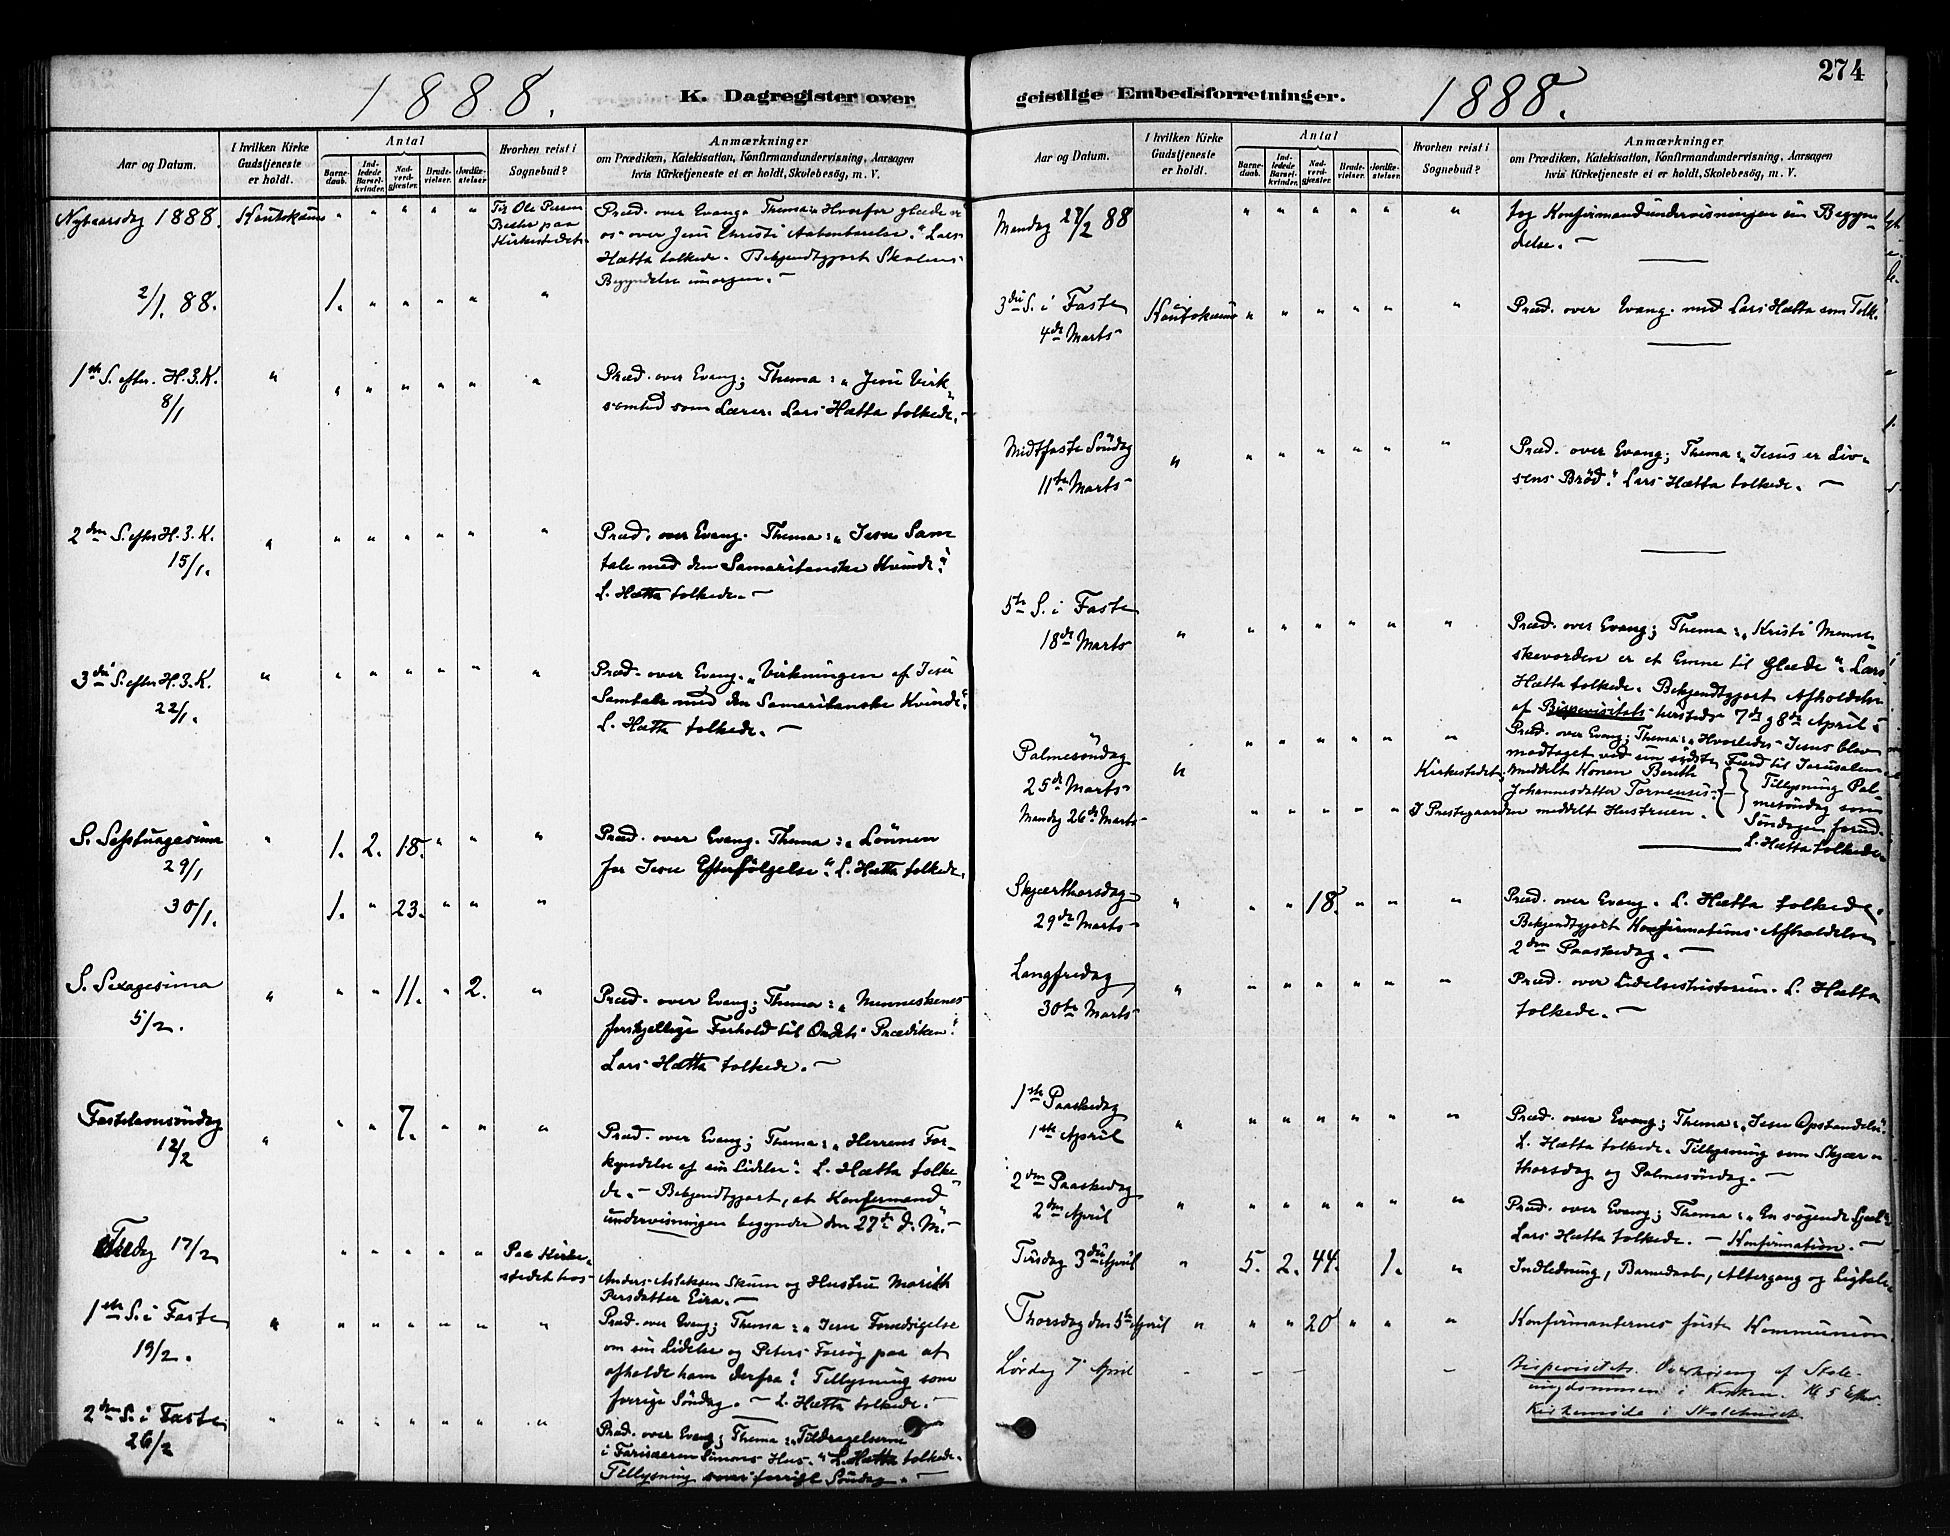 1888.
K. Dagregister over
Aar og Datum.
I hvilken Kirke Gudstjeneste er holdt.
Antal
Barnedaab.
Indledede Barselkvinder.
Nadverdgjester.
Brudevielser.
Jordfæstelser
Hvorhen reist i Sognebud?
Anmærkninger
om Prædiken, Katekisation, Konfirmandundervisning, Aarsagen
hvis Kirketjeneste ei er holdt, Skolebesög, m. V.
Nytaarsdag 1888. Kautokeino " " " " " Til Ole Persen
Præd. over Evang. Thema: Hvorfor glæde vi
os over Jesu Christi Aabenbarelse." Lars
Kirkestedet.
Hætta tolkede. Bekjendtgjort Skolens
Begyndelse imorgen. —
2/1. 88. 1. " " " " "
1ste S. efter. H. 3. K. " " " " " " " Præd. over Evang; Thema: „Jesu Virk-
8/1 somhed som Lærer." Lars Hætta tolkede. —
2den S. efter H. 3. K. " " " " " " " Præd. over Evang. Thema: „Jesu Sam
15/1. tale med den Samaritanske Kvinde".
L. Hætta tolkede. —
3die S. efter H. 3. K. " " " " " " " Præd. over Evang. „Virkningen af Jesu
22/1. Samtale med den Samaritanske Kvinde".
L. Hætta tolkede. —
S. Septuagesima " 1. 2. 18. " " " Præd. over Evang. Thema: „Lönnen
29/1 for Jesu Efterfölgelse". L. Hætta tolkede.
30/1. 1. " 23. " " "
S. Sexagesima " " " 11. " 2. " Præd. over Evang; Thema: „Menneskenes
5/2. forskjellige Forhold til Ordets Prædiken".
Lars Hætta tolkede. —
Fastelavnsöndag " " " 7. " " " Præd. over Evang; Thema: „Herrens For-
12/2 kyndelse af sin Lidelse". L. Hætta tolke-
de. — Bekjendtgjort, at Konfirmand
undervisningen begynder den 27de d. M. —
17/2 " " " " " Paa Kirke-
stedet hos Anders Aslaksen Skum og Hustru Marith
Persdatter Eira. —
1ste S. i Faste " " " " " " " Præd. over Evang; Thema: „Jesu Forudsigelse
19/2. om sin Lidelse og Peters Forsög paa at
afholde ham derfra". Tillysning som
forrige Söndag. — L. Hætta tolkede. —
2den S. i Faste " " " " " " " Præd. over Evang; Thema: „Tildragelserne
26/2 i Farisæeren Simons Hus." L. Hætta tolkede.
Tillysning som forrige Söndag. —
274
geistlige Embedsforretninger.
1888.
Aar og Datum.
I hvilken Kirke Gudstjeneste er holdt.
Antal
Barnedaab.
Indledede Barselkvinder.
Nadverdgjester.
Brudevielser.
Jordfæstelser.
Hvorhen reist i Sognebud?
Anmærkninger
om Prædiken, Katekisation, Konfirmandundervisning, Aarsagen
hvis Kirketjeneste ei er holdt, Skolebesög, m. V.
Mandag 27/2 88 " " " " " " Tog Konfirmandundervisningen sin Begyn-
delse. —
3die S. i Faste Kautokeino " " " " " " Præd. over Evang. med Lars Hætta som Tolk.
4de Marts
Midtfaste Söndag " " " " " " " Præd. over Evang; Thema: „Jesus er Liv-
11te Marts sens Bröd". Lars Hætta tolkede. —
5te S. i Faste
18de Marts " " " " " " " Præd. over Evang; Thema: „Kristi Menne-
skevorden er et Emne til Glæde". Lars
Hætta tolkede. Bekjendtgjort Afholdelse
af Bispevisitats herstede 7de og 8de April.
Palmesöndag " " " " " " " Præd. over Evang; Thema: „Hvorledes Jesus blev
25de Marts modtaget ved sin sidste Færd til Jerusalem
Kirkestedet, meddelt Konen Berith
Johannesdatter Tornensis.
Mandag 26de Marts " " " " " I Prestegaarden meddelt Hustruen.
Tillysning Pal-
mesöndag som
Söndagen forud.
L. Hætta tolkede
Skjærthorsdag " " " 18. " " " Præd. over Evang. L. Hætta tolkede.
29de Marts Bekjendtgjort Konfirmations Afholdelse
2den Paaskedag. —
Langfredag " " " " " " " Præd. over Lidelseshistorien. L. Hætta
30te Marts tolkede. —
1ste Paaskedag " " " " " " " Præd. over Evang; Thema: „Jesu Opstandelse".
1ste April L. Hætta tolkede. Tillysning som Skjær-
thorsdag og Palmesöndag. —
2den Paaskedag " " " " " " " Præd. over Evang; Thema: „En sögende Sjæl".
2den April Lars Hætta tolkede. — Konfirmation. —
Tirsdag 3die April " 5. 2. 44. " 1. " Indledning, Barnedaab, Altergang og Ligtale
Thorsdag den 5te April " " " 20 " " " Konfirmanternes förste Kommunion.
Lördag 7 April - - - - Bispevisitats. Overhöring af Skole-
ungdommen i Kirken. Kl 5 Efter.
Kirkemöde i Skolehuset.